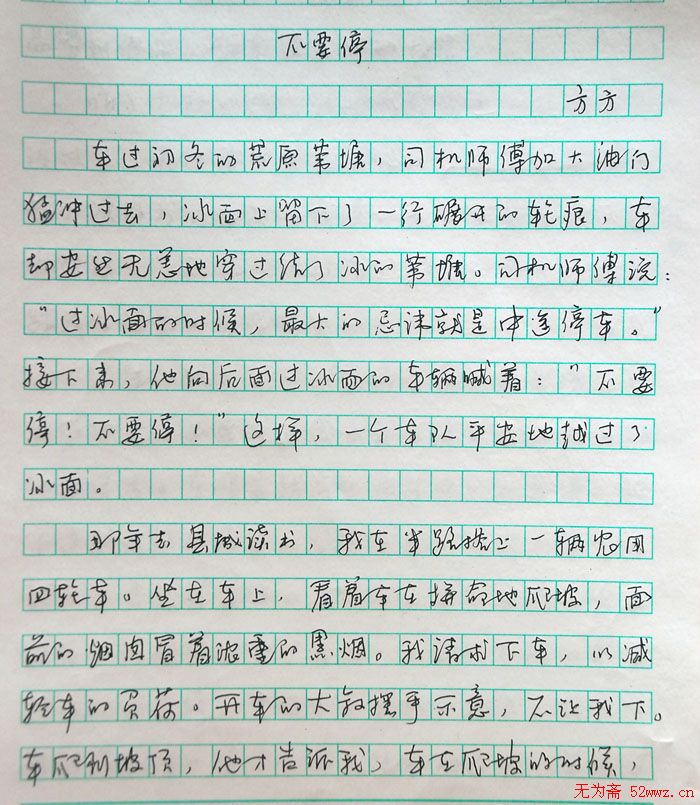 不要停
方方
车过初冬的荒原苇塘，司机师傅加大油门
猛冲过去，冰面上留下了一行碾开的轮痕，车
却安然无恙地穿过结了冰的苇塘。司机师傅说：
“过冰面的时候，最大的忌讳就是中途停车。”
接下来，他向后面过冰面的车辆喊着：“不要
停！不要停！”这样，一个车队平安地越过了
冰面。
那年去县城读书，我在半路搭上一辆农用
四轮车。坐在车上，看着车在拼命地爬坡，面
前的烟囱冒着浓重的黑烟。我请求下车，以减
轻车的负荷。开车的大叔摆手示意，不让我下。
车爬到坡顶，他才告诉我，车在爬坡的时候，
无为斋 52wwz.cn